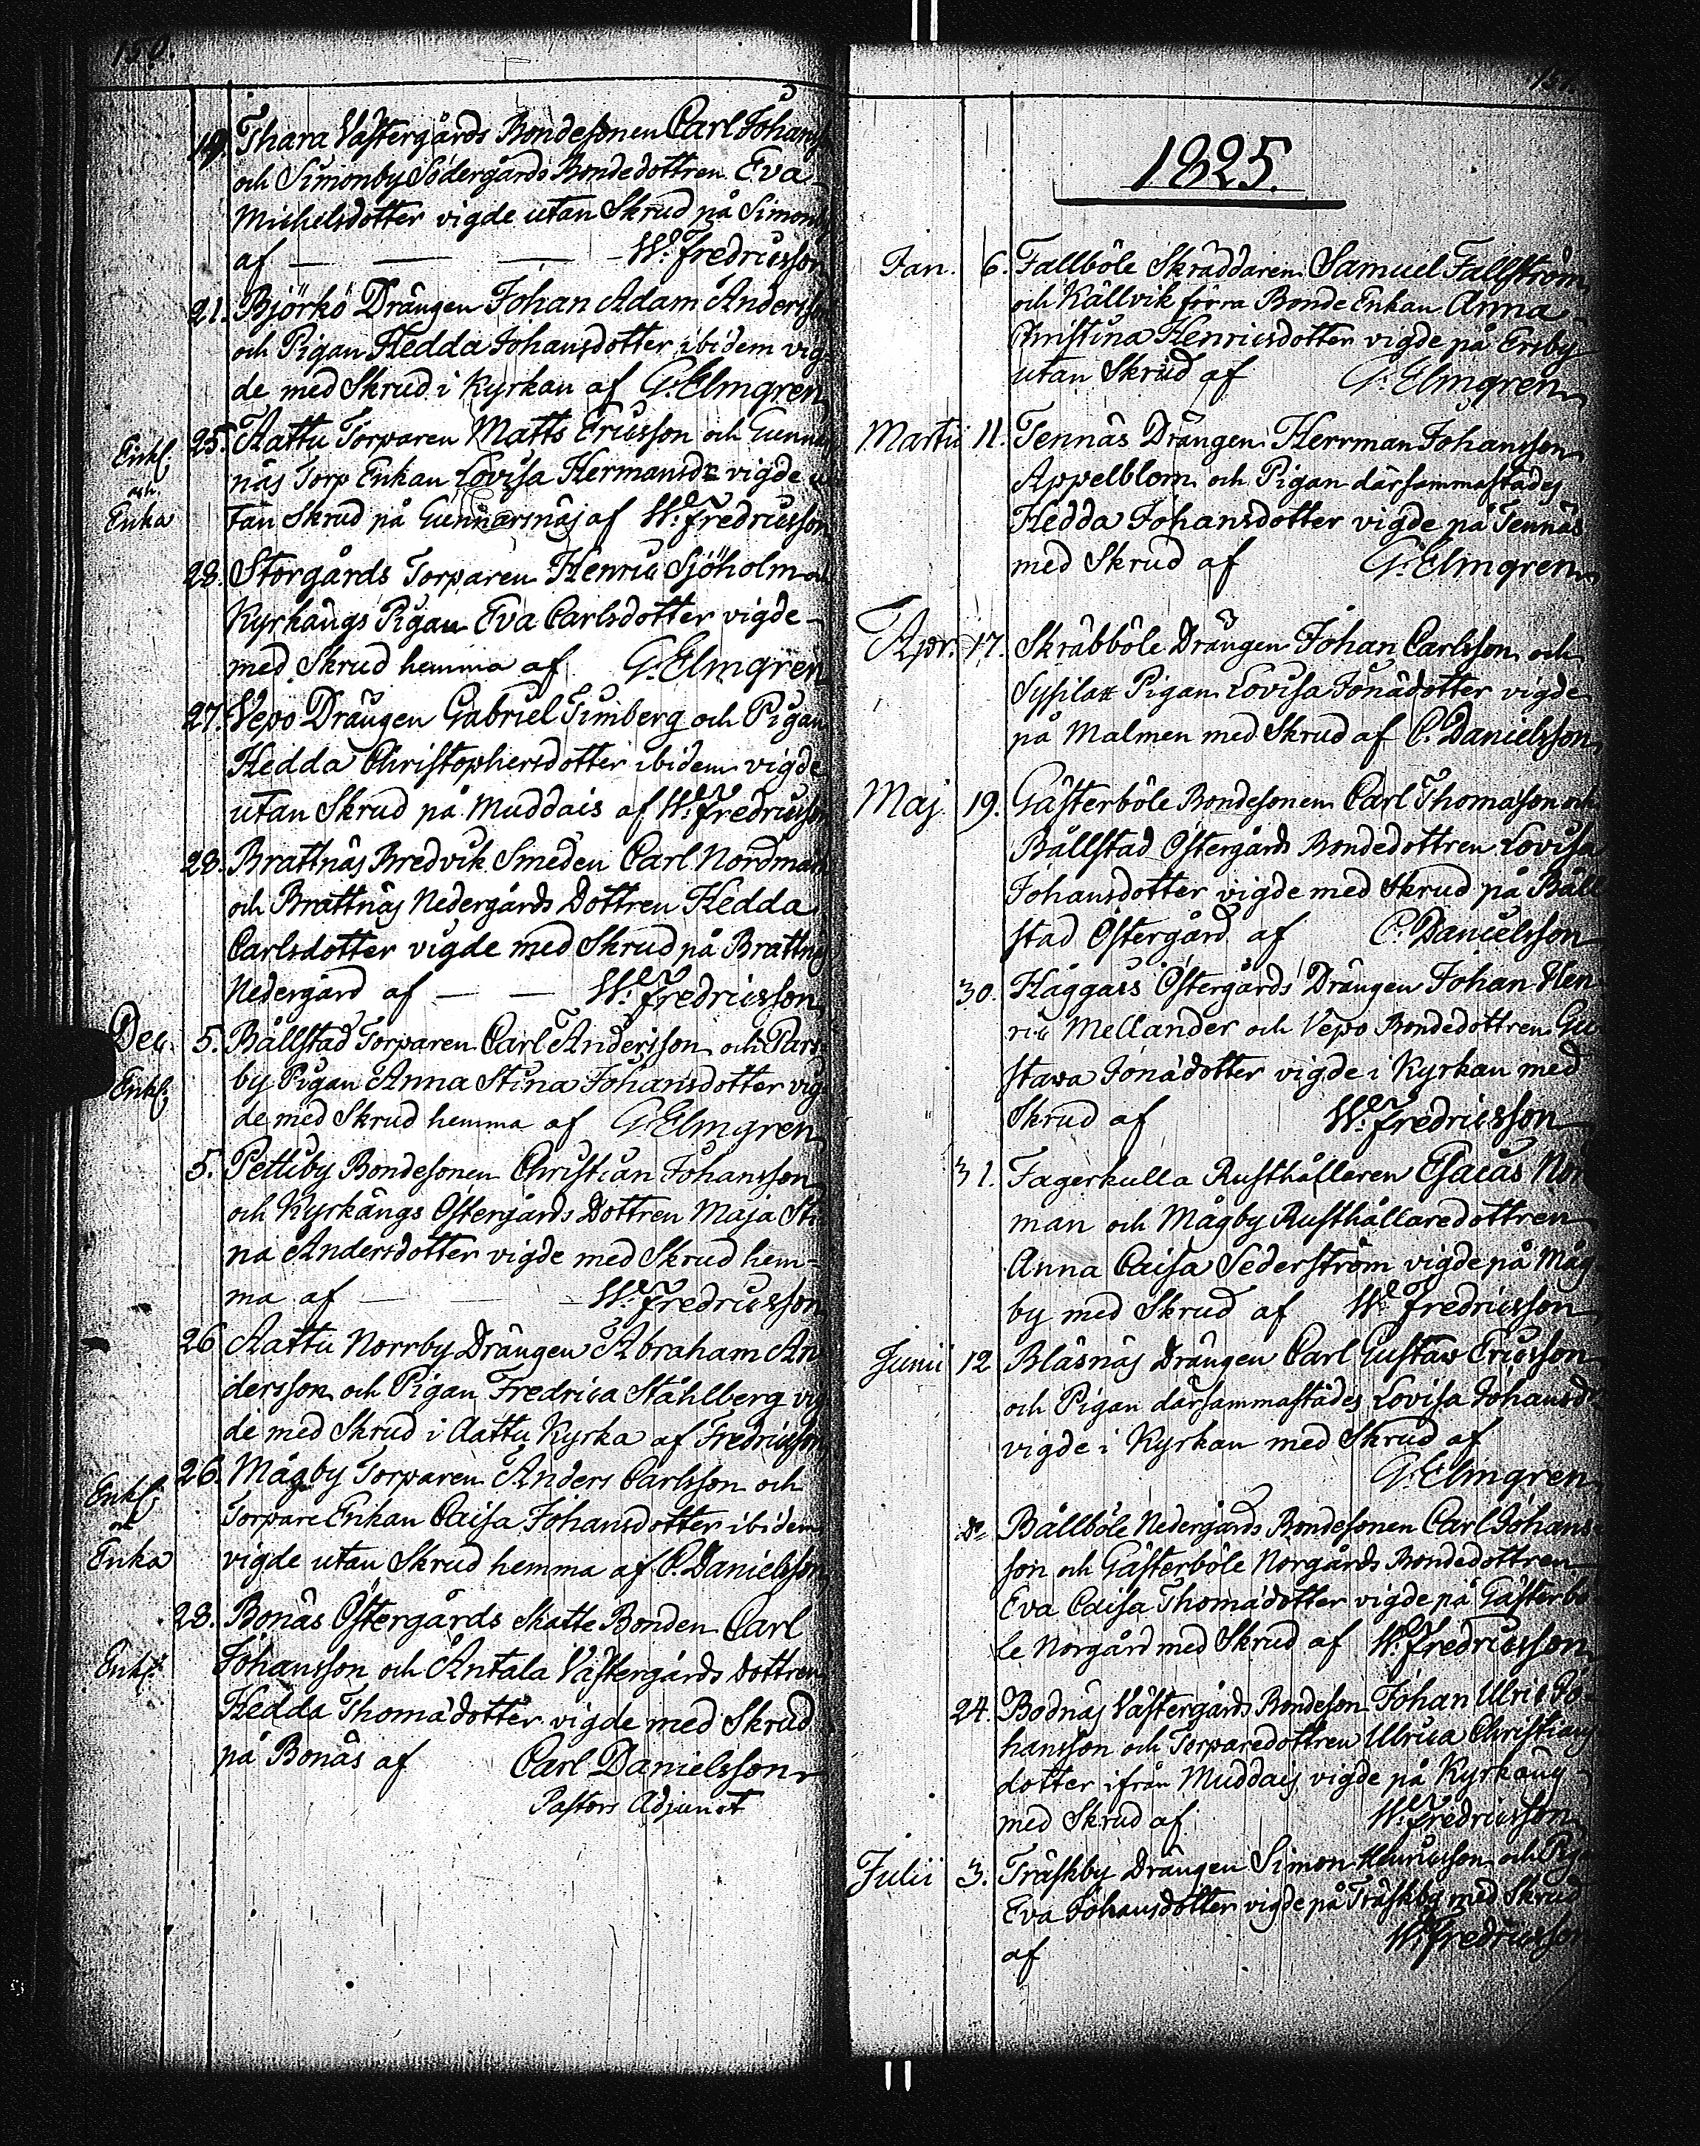 150.
19. Thara Västergårds Bondesonen Carl Johans
och Simonby Södergårds Bondedottren Eva
Michelsdotter vigde utan Skrud på Simon
af — — — W. Fredricsson
21. Björkö Drängen Johan Adam Anders
och Pigan Hedda Johansdotter ibidem vig
de med Skrud i Kyrkan af G. Elmgren
Enkl. och Enka
25. Aattu Torparen Matts Ericsson och Gunnar
näs Torp Enkan Lovisa Hermansdr vigde u
tan Skrud på Gunnarsnäs af W. Fredricsson
28. Storgårds Torparen Henric Sjöholm och
Kyrkängs Pigan Eva Carlsdotter vigde
med Skrud hemma af G. Elmgren
27. Vepo Drängen Gabriel Timberg och Pigan
Hedda Christophersdotter ibidem vigde
utan Skrud på Muddais af W. Fredricsson
28. Brattnäs Bredvik Smeden Carl Nordman
och Brattnäs Nedergårds Dottren Hedda
Carlsdotter vigde med Skrud på Brattnäs
Nedergård af — — W. Fredricsson
Dec. 5. Bällstad Torparen Carl Andersson och Pars
Enkl. by Pigan Anna Stina Johansdotter vig
de med Skrud hemma af G. Elmgren
5. Pettby Bondesonen Christian Johansson
och Kyrkängs Östergårds Dottren Maja Sti
na Andersdotter vigde med Skrud hem-
ma af — — W. Fredricsson
26 Aattu Norrby Drängen Abraham An
dersson och Pigan Fredrica Ståhlberg vig
de med Skrud i Aattu Kyrka af Fredricsson
Enkl. och Enka
26. Mågby Torparen Anders Carlsson och
Torpare Enkan Caisa Johansdotter ibidem
vigde utan Skrud hemma af C. Danielsson
28. Bonäs Östergårds Skatte Bonden Carl
Enkl. Johansson och Antala Västergårds Dottren
Hedda Thomädotter vigde med Skrud
på Bonäs af Carl Danielsson
Pastors Adjunct
151.
1825.
Jan. 6. Fallböle Skräddaren Samuel Fallström
och Källvik förra Bonde Enkan Anna
Christina Henricsdotter vigde på Ersby
utan Skrud af G. Elmgren
Martii 11. Tennäs Drängen Herrman Johansson
Appelblom och Pigan därsammastädes
Hedda Johansdotter vigde på Tennäs
med Skrud af G. Elmgren
Apr. 17. Skräbböle Drängen Johan Carlsson och
Sysilax Pigan Lovisa Jonädotter vigde
på Malmen med Skrud af C. Danielsson
Maj 19. Gästerböle Bondesonen Carl Thomason och
Bällstad Östergårds Bondedottren Lovisa
Johansdotter vigde med Skrud på Bäll
stad Östergård af C. Danielsson
30. Haggais Östergårds Drängen Johan Hen
ric Mellander och Vepo Bondedottren Gu
stava Jonädotter vigde i Kyrkan med
Skrud af W. Fredricsson
31. Fagerkulla Rusthållaren Esaias Nor
man och Mågby Rusthållaredottren
Anna Caisa Sederström vigde på Måg
by med Skrud af W. Fredricsson
Junii 12 Bläsnäs Drängen Carl Gustav Ericsson
och Pigan därsammastädes Lovisa Johansd
vigde i Kyrkan med Skrud af
G. Elmgren
Do Bällböle Nedergårds Bondesonen Carl Johans
son och Gästerböle Norgårds Bondedottren
Eva Caisa Thomädotter vigde på Gästerbö
le Norgård med Skrud af W. Fredricsson
24. Bodnäs Västergårds Bondeson Johan Ulric Jo
hansson och Torparedottren Ulrica Christians
dotter ifrån Muddais vigde på Kyrkäng
med Skrud af W. Fredricsson
Julii 3. Träskby Drängen Simon Henricsson och Piga
Eva Johansdotter vigde på Träskby med Skrud
af W. Fredricsson